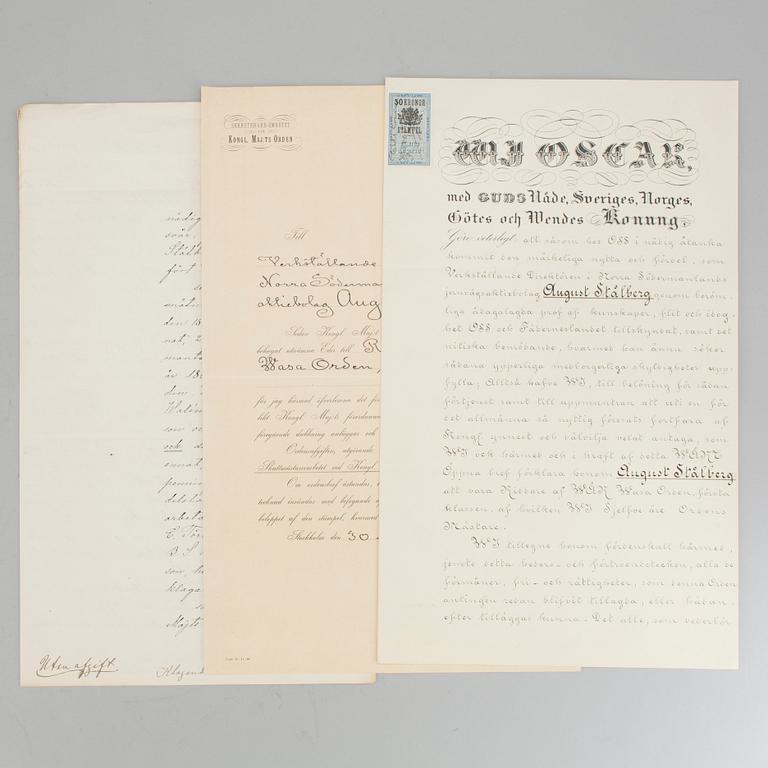 nådig
svar
fört
den 18
år 18
den
som
ock
ennat
arbeta
B. S.
klaga
Majts
Utan afgift
Klagand
SEKRETERARE-EMBETET
KONGL. MAJ:TS ORDEN
Till
Verkställande
Norra Söderma
aktiebolag Aug
Sedan Kongl Maj:t
behagat utnämna Eder till R
Wasa Orden,
får jag härmed
likt Kongl Maj:ts
föregående dubbning anlägges och
Ordensafgiften, utgörande
Skattmästareembetet vid Kongl
Om ordensbref åstundas,
tecknad insändas med bifogande
beloppet af den stämpel, hvarmed
Stockholm den 30
50 KRONOR
STÄMPEL
WJ OSCAR,
med GUDS Nåde, Sveriges, Norges,
Götes och Wendes Konung,
Göre veterligt att såsom hos OSS i nådig åtanka
kommit den märkeliga nytta och fördel, som
Verkställande Direktören i Norra Södermanlands
jernvägsaktiebolag August Stålberg genom beröm-
liga ådagalagda prof af kunskaper, flit och idog-
het OSS och Fäderneslandet tillskyndat, samt det
nitiska bemödande, hvarmed han ännu söker
sådana ypperliga medborgerliga skyldigheter upp-
fylla; Alltså hafve WJ, till belöning för sådan
förtjenst samt till uppmuntran att uti en för
det allmänna så nyttig föresats fortfara af
Kongl ynnest och välvilja velat antaga, som
WJ ock härmed och i kraft af detta WÅRT
Öppna bref förklara honom August Stålberg
att vara Riddare af WÅR Wasa Orden, första
klassen, af hvilken WJ Sjelfve äre Ordens
Mästare.
WJ tillegne honom fördenskull härmed,
jemte detta heders- och förtroendetecken, alla de
förmåner, fri- och rättigheter, som denna Orden
antingen redan blifvit tillagda, eller hädan-
efter tilläggas kunna. Det alle, som vederbör